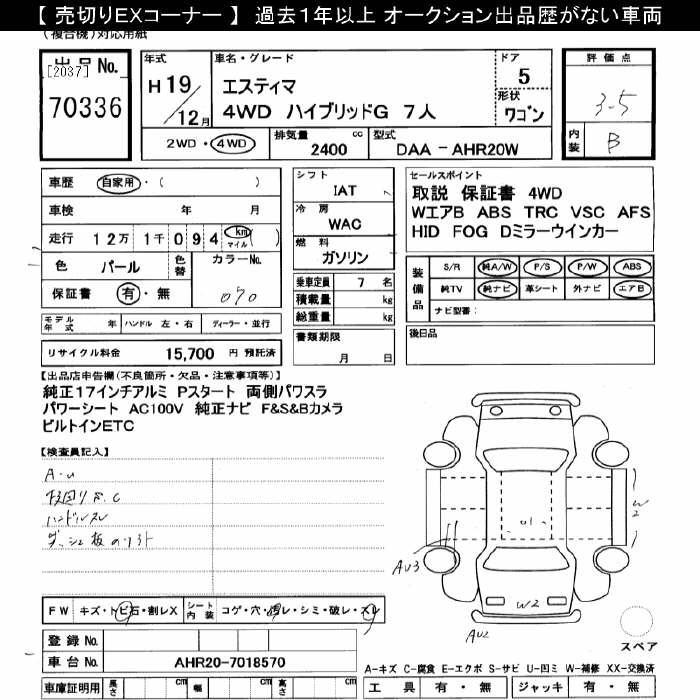 【 売切りEXコーナー 】 過去1年以上 オークション出品歴がない車両
(複合機)対応用紙
出品No.
[2037]
70336
年式
H19/12月
車名・グレード
エスティマ
4WD ハイブリッドG 7人
ドア
5
形状
ワゴン
評価点
3.5
内装
B
2WD・4WD
排気量 cc
2400
型式
DAA-AHR20W
車歴 自家用・( )
車検 年 月
走行 12万1千094 km マイル ( )
色 パール 色替 カラーNo.
保証書 有・無 070
シフト
IAT
冷房
WAC
燃料
ガソリン
乗車定員 7 名
積載量 kg
総重量 kg
書類期限
月 日
セールスポイント
取説 保証書 4WD
WエアB ABS TRC VSC AFS
HID FOG Dミラーウインカー
装備品
S/R 純A/W P/S P/W ABS
純TV 純ナビ 革シート 外ナビ エアB
ナビ型番:
後日品
モデル年式 年 ハンドル 左・右 ディーラー・並行
リサイクル料金 15,700 円 預託済
【出品店申告欄(不良箇所・欠品・注意事項等)】
純正17インチアルミ Pスタート 両側パワスラ
パワーシート AC100V 純正ナビ F&S&Bカメラ
ビルトインETC
【検査員記入】
A・u
ハンドルスレ
AU3
W2
W2
AU2
FW キズ・トビ石・割レX シート内装 コゲ・穴・切レ・シミ・破レ・スレ
登録No.
車台No. AHR20-7018570
車庫証明用 長さ cm 幅 cm 高さ cm
スペア
A-キズ C-腐食 E-エクボ S-サビ U-凹ミ W-補修 XX-交換済
工具 有・無 ジャッキ 有・無